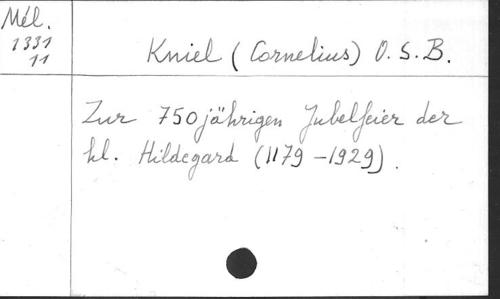 Mél.
1331
11
Kniel (Cornelius) O.S.B.
Zur 750jährigen Jubelfeier der
hl. Hildegard (1179-1929).